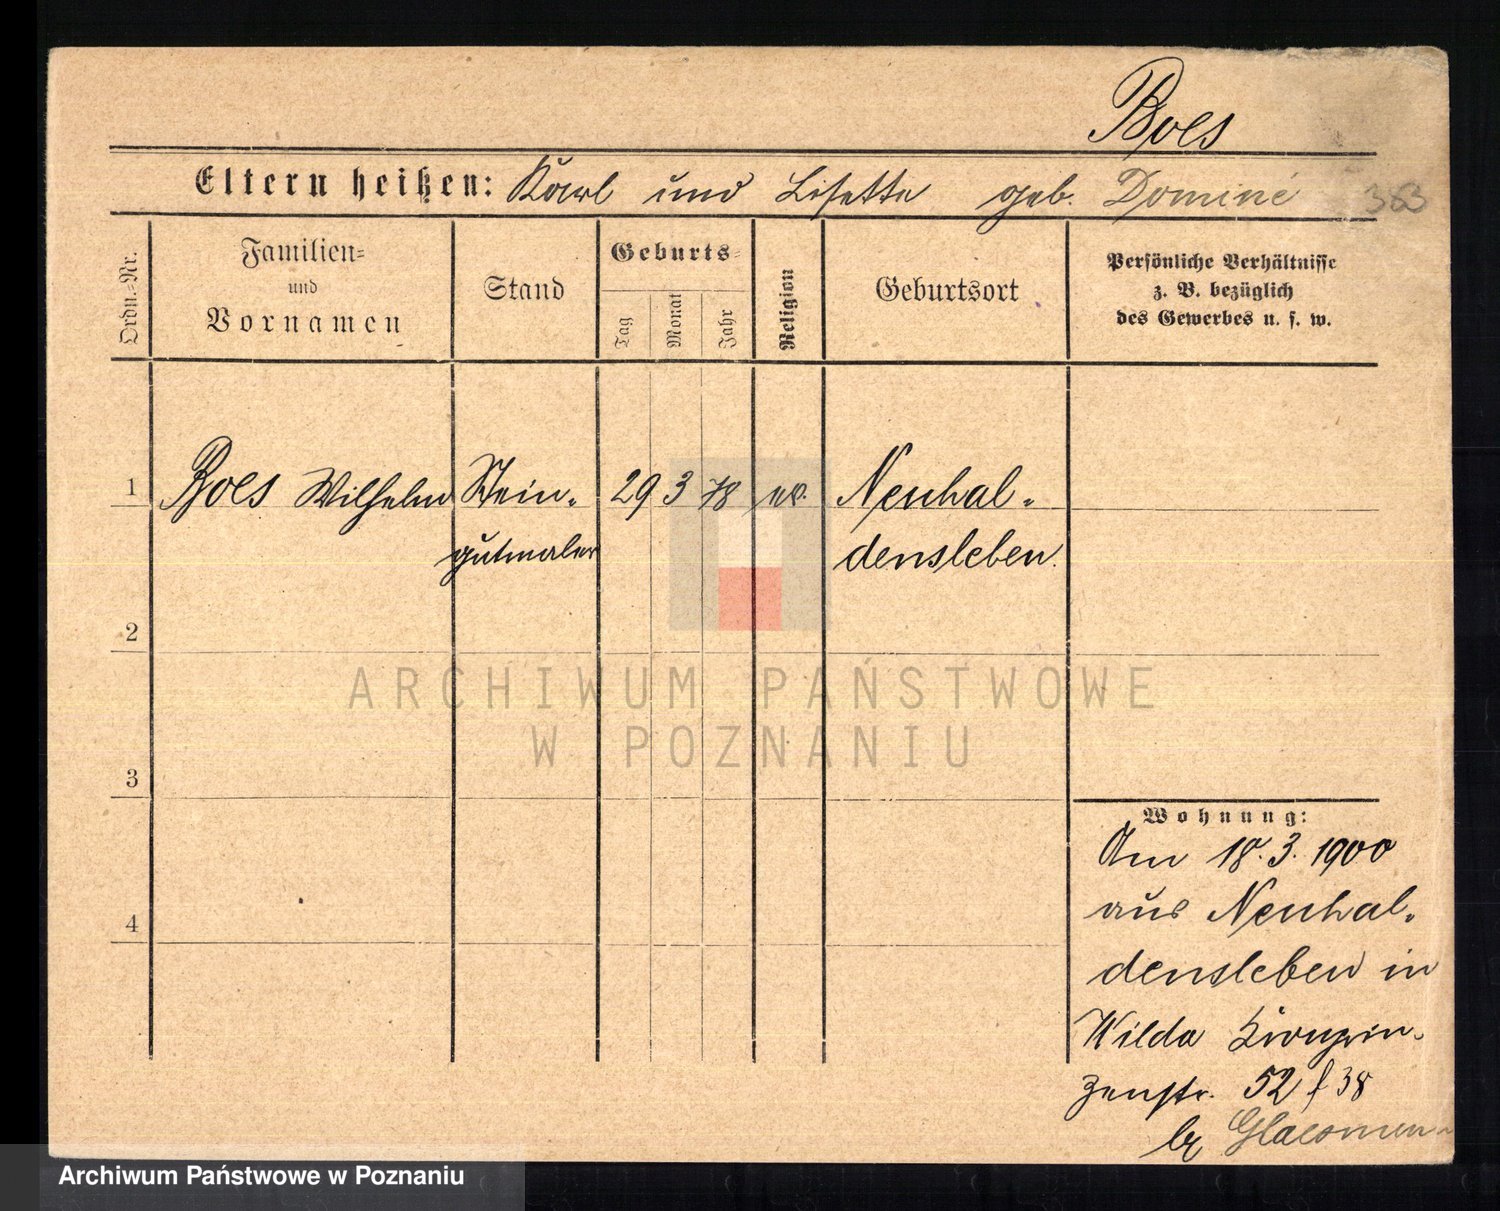 Boes
Eltern heißen: Karl und Lisette geb. Dominé 383
Ordn.-Nr.
Familien-
und
Vornamen
Stand
Geburts-
Tag
Monat
Jahr
Religion
Geburtsort
Persönliche Verhältnisse
z. B. bezüglich
des Gewerbes u. s. w.
1 Boes Wilhelm Stein- 29 3 78 ev. Neuhal-
gutmaler densleben.
2
ARCHIWUM PAŃSTWOWE
W POZNANIU
3
Wohnung:
Am 18.3.1900
aus Neuhal-
4
densleben in
Wilda Kronprin-
zenstr. 52 f 38
Archiwum Państwowe w Poznaniu